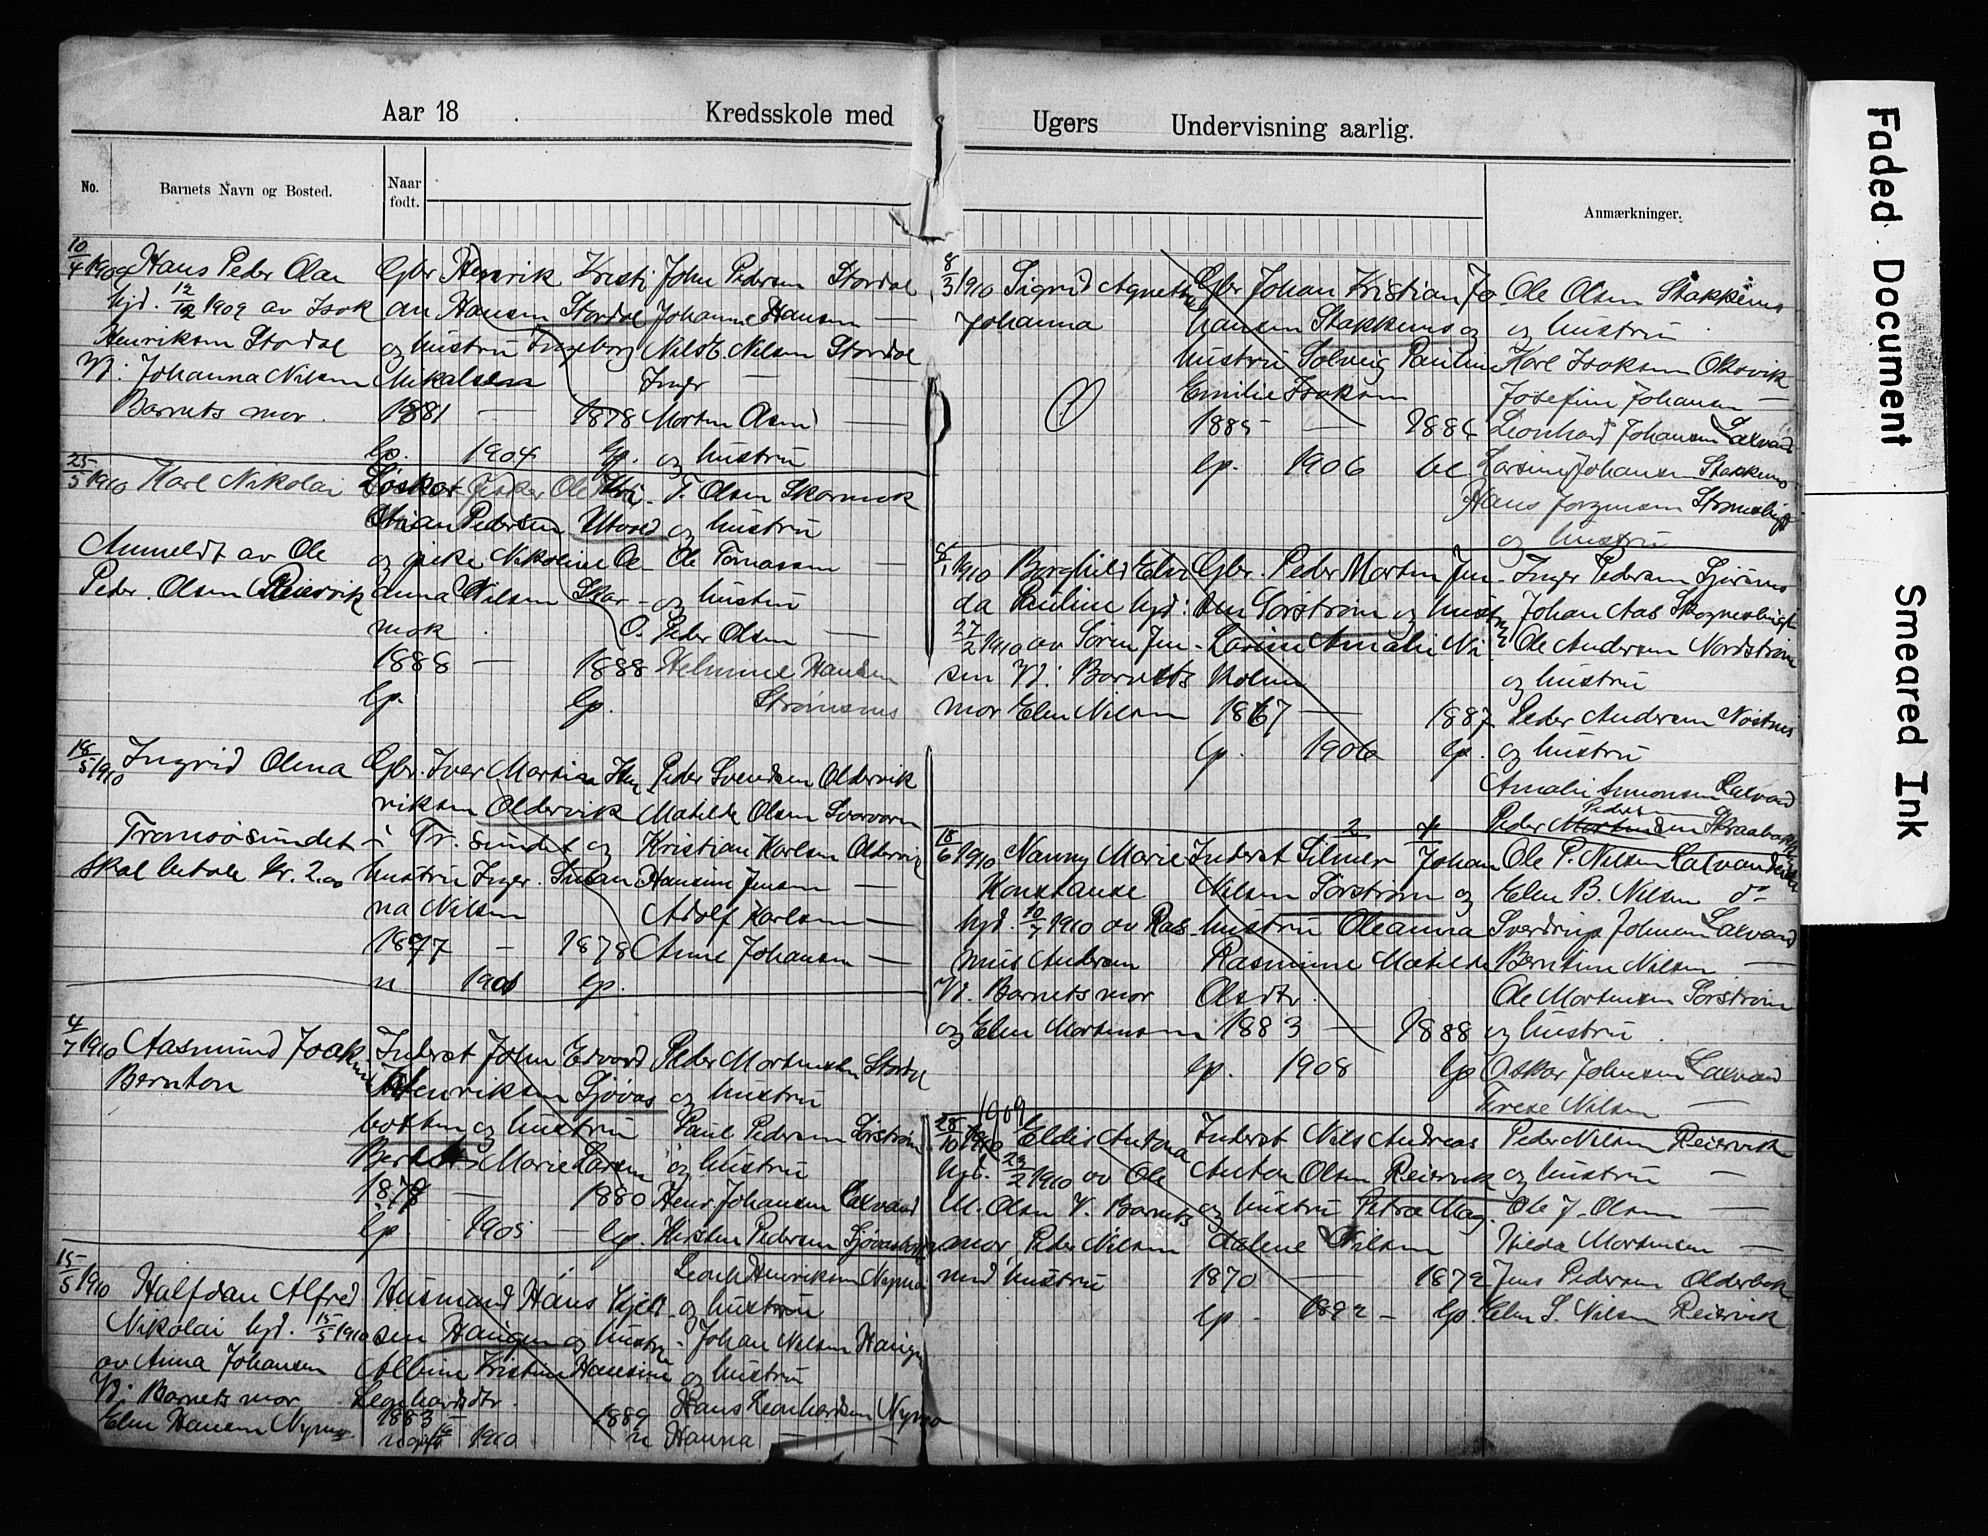 Aar 18
Kredsskole med
No.
Barnets Navn og Bosted.
Naar født.
10/4 1909 Hans Peder Olai
hjd. 12/12 1909 av Isak
Henriksen Stordal
V: Johanna Nilsen
Barnets mor.
Gbr Henrik Kristi
an Hansen Stordal
og hustru Ingeborg
Mikalsen
1881 — 1878
lp. 1904 lp.
John Pedersen Stordal
Johanne Hansen —
Nils E. Nilsen Stordal
Inger — —
Morten Olsen —
og hustru
25/5 1910 Karl Nikolai
Anmeldt av Ole
Peder Olsen Reiervik
Løskar Fisker Ole Kri-
stian Pedersen Utvord
og pike Nikoline Ol-
anna Nilsen Skar-
mok
1888 — 1888
lp. lp.
T. Olsen Skarmok
og hustru
Ole Tomassen —
og hustru
O. Peder Olsen —
Helmine Hansen
Strømsnes
18/5 1910 Ingrid Olena
Tromsøsundet
skal betale kr. 2.00
Gbr. Iver Martin Hen
riksen Oldervik
i Tr. sundet og
hustru Inger Susan
na Nilsen
1877 — 1878
n 1901 lp.
Peder Svendsen Oldervik
Matilde Olsen Svarvaren
Kristian Karlsen Oldervik
Hansine Jensen —
Adolf Karlsen —
Anne Johansen —
4/7 1910 Aasmund Joakim
Bernton
Inderst John Edvard
Henriksen Sjøvas
botten og hustru
Berit Marie Larsen
1879 — 1880
lp. 1905 — lp.
Peder Mortensen Stordal
og hustru
Paul Pedersen Sørstrøm
og hustru
Henr. Johansen Laxvand
Kirsten Pedersen Sjøvasbotten
15/5 1910 Halfdan Alfred
Nikolai hjd. 15/5 1910
av Anna Johansen
V: Barnets mor
Elen Hansen Nymo
Husmand Hans Kjell
sen Haugen og hustru
Albine Kristine Hansine
Leonhardsdtr.
1883 — 1889
ugift 1910 n
Leonh Henriksen Nymo
og hustru
Johan Nilsen Haugen
og hustru
Hans Leonhardsen Nymo
Hanna — —
Ugers Undervisning aarlig.
Anmærkninger.
8/3 1910 Sigrid Agnethe
Johanna
Gbr Johan Kristian Jo
hansen Stakkenes og
hustru Solveig Pauline
Emilie Isaksen
1885 — 1884
lp. 1906 lp
Ole Olsen Stakkenes
og hustru
Karl Isaksen Oksvik
Josefine Johansen —
Leonhard Johansen Laxvand
Larsine Johansen Stakkenes
Hans Jørgensen Strømsbugt
og hustru
4/1 1910 Borghild Elvi
da Pauline hjd:
27/2 1910 av Søren Jen-
sen V: Barnets
mor Elen Nilsen
Gbr. Peder Morten Jen-
sen Sørstrøm og hustru
Larine Amalie Ni
koline
1867 — 1887
lp. 1906 lp.
Inger Pedersen Sjøvas
Johan Aas Skognesbugt
Ole Andersen Nordstrøm
og hustru
Peder Andersen Nøstnes
og hustru
Amalie Simonsen Laxvand
Peder Pedersen Skraabakken
18/6 1910 Nanny Marie
Konstanse
hjd. 10/7 1910 av Ras-
mus Andersen
V. Barnets mor
og Elen Mortensen
Inderst Silmer Johan
Nilsen Sørstrøm og
hustru Oleanna
Rasmine Matilde
Olsdtr.
1883 — 1888
lp. 1908 lp
Ole P. Nilsen Laxvandeidet
Elen B. Nilsen do
Sverdrup Johnsen Laxvand
Berntine Nilsen —
Ole Mortensen Sørstrøm
og hustru
Oskar Johnsen Laxvand
Terese Nilsen —
28/10 1909 Eldis Antona
hjd. 23/2 1910 av Ole
M. Olsen V. Barnets
mor Peder Nilsen
med hustru
Inderst Nils Andreas
Anton Olsen Reiervik
og hustru Petra Mag.
dalene Nilsen
1870 — 1872
lp. 1892 — lp.
Peder Nilsen Reiervik
og hustru —
Ole J. Olsen —
Hilda Mortensen —
Jens Pedersen Olderbak
Elen S. Nilsen Reiervik
Faded Document
Smeared Ink